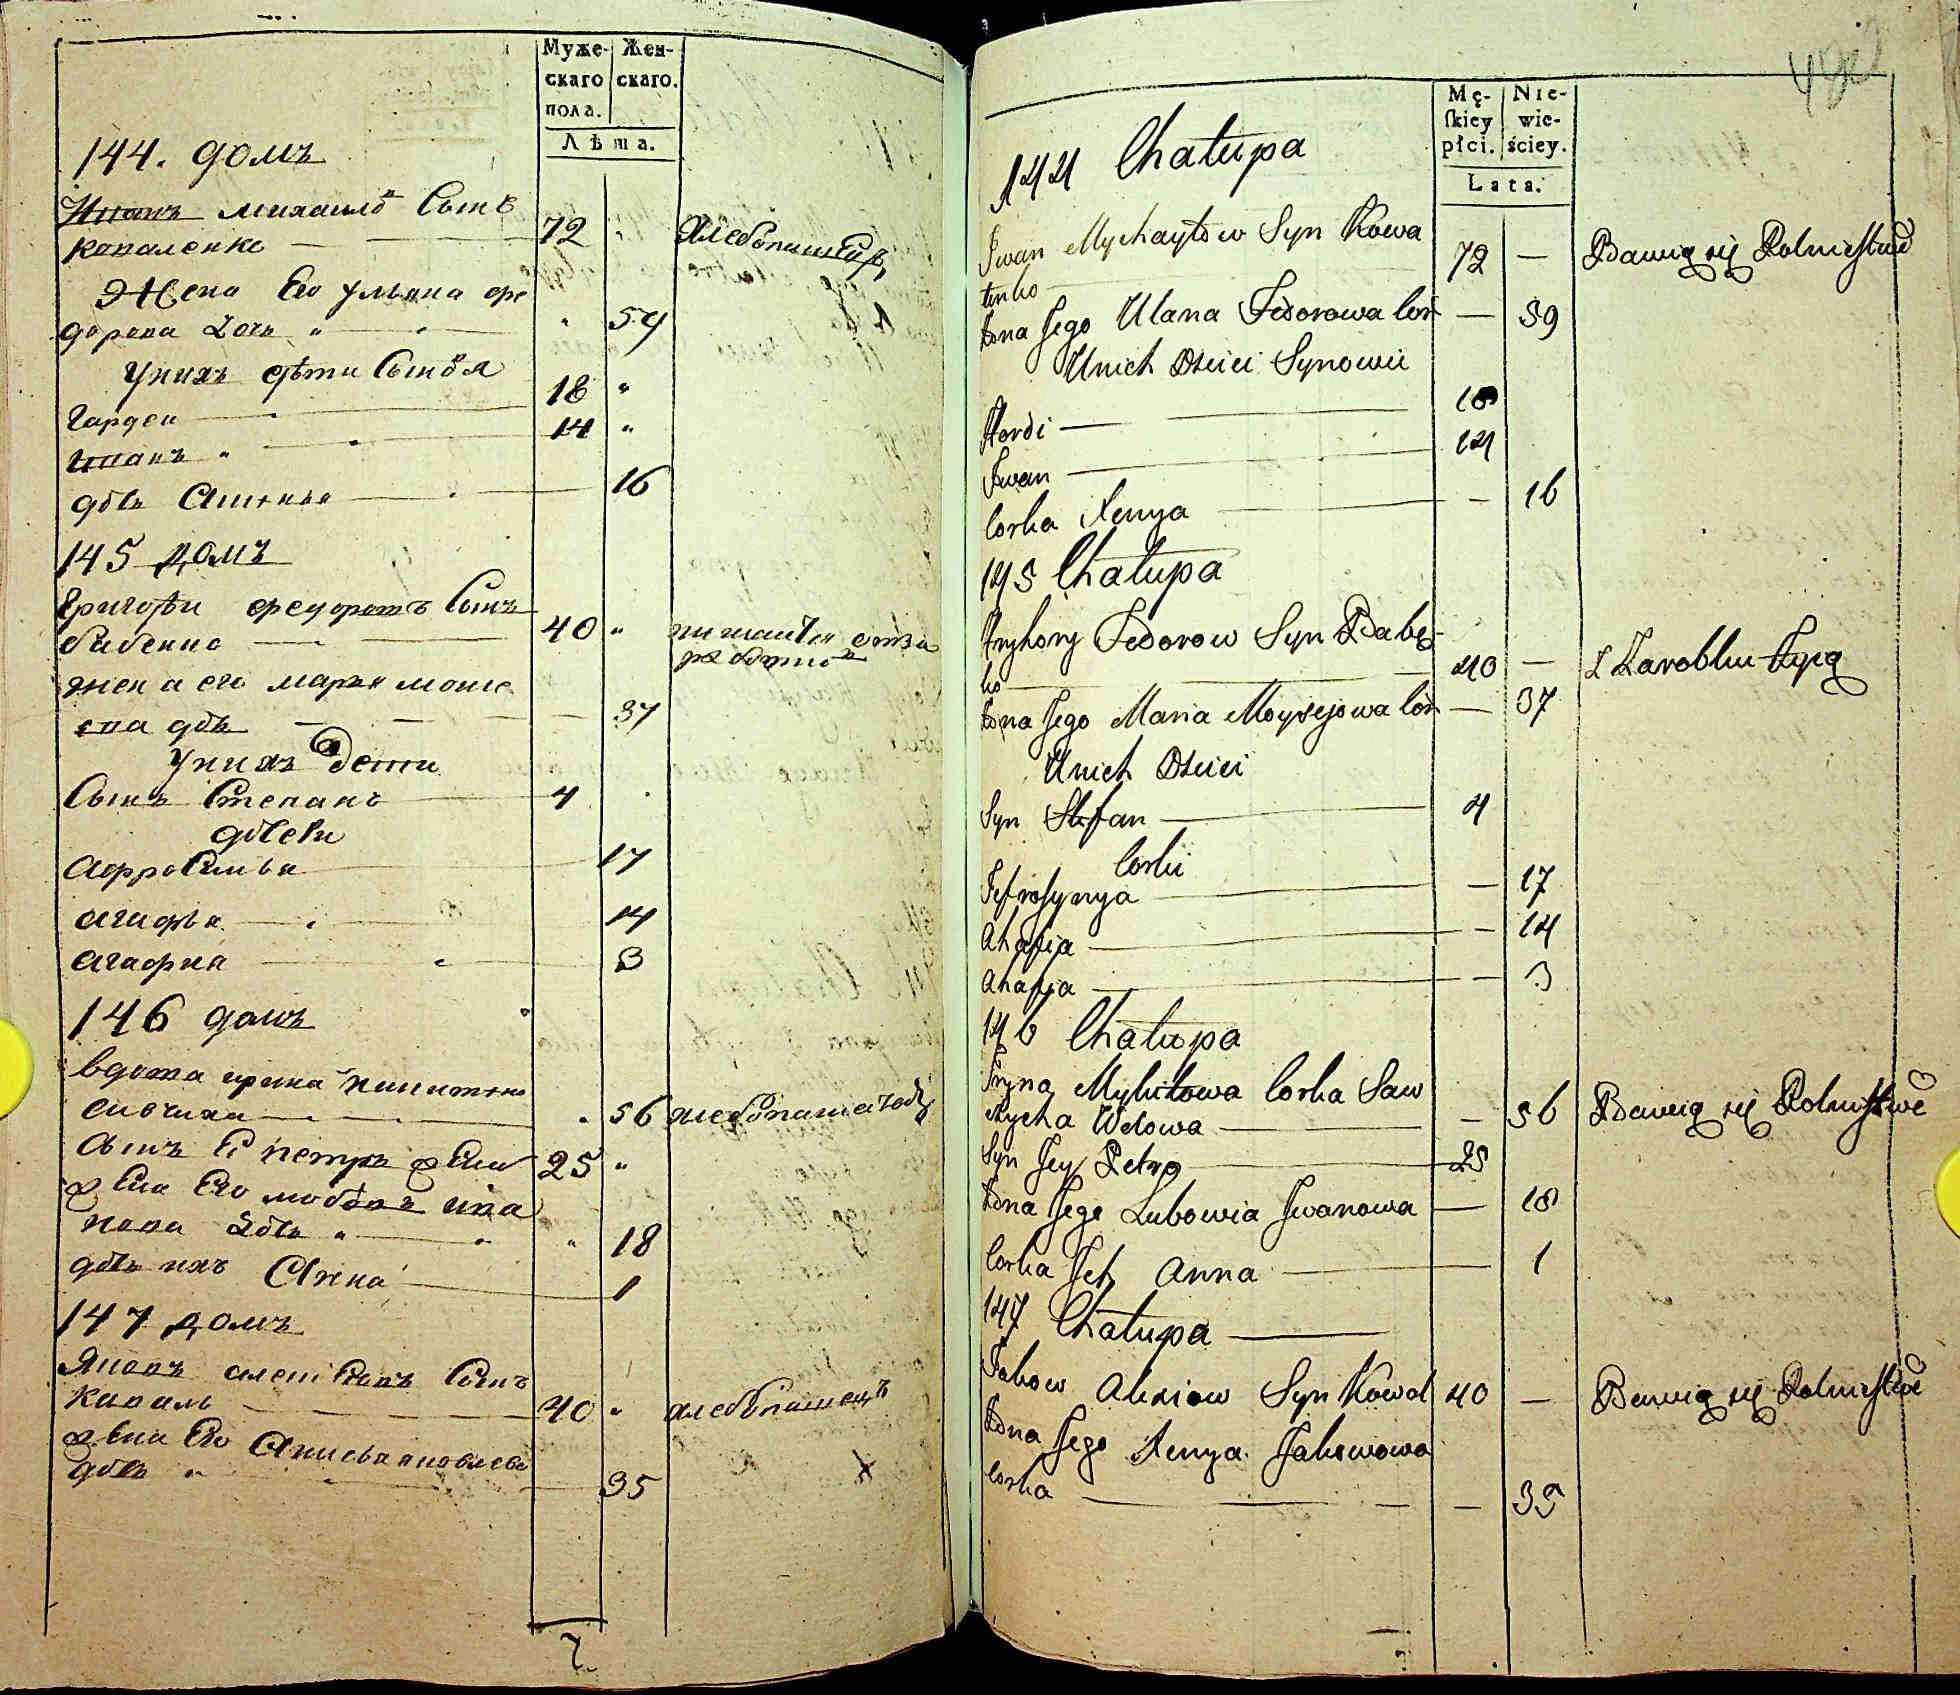 Муже-
скаго
пола.
Жен-
скаго.
Лѣта.
144. домъ
Иванъ михаиловъ Сынъ
коваленко 72 „ хлебопашецъ
Жена Его ульяна фе
дорова Дочь „ „ 59
Унихъ дѣти Сыновя
Гардей 18 „
Иванъ „ 14 „
дочь 16
145 домъ
Григорѣи федоровъ Сынъ
бабенко 40 „
жена его маръя моисе
ева дочь 37
Унихъ дети
Сынъ Степанъ 4
дочеви
Афросинья 17
агафья 14
агафия 3
146 домъ
вдова ирина никитина
савчиха „ 56 хлебопашецъ
Сынъ Ей петръ 25 „
жена Его любовь ива
нова Дочь „ „ 18
дочь ихъ Анна 1
147 домъ
Яковъ алексѣевъ Сынъ
Коваль 40 „ хлебопашецъ
жена Его яковлева
дочь „ 35
7
Mę-
skiey
płci.
Nie-
wie-
ściey.
Lata.
144 Chałupa
Iwan Mychayłow Syn Kowa
lenko 72 — Bawią się Rolnictwē
Żona Jego Ulana Fedorowa Cór — 59
Unich Dzieci Synowie
Hordi — 18
Iwan — 14
Corka Xenya — 16
145 Chałupa
Hryhory Fedorow Syn Babę-
ko 40 — Z Zarobku żyią
Żona Jego Maria Moysejowa Cór — 37
Unich Dzieci
Syn Stefan — 4
Corki
Jefrosynya — 17
Ahafia — 14
Ahafja — 3
146 Chałupa
Iryna Mykitowa Corka Saw
czycha Wdowa — 56 Bawią się Rolnictwē
Syn Jey Petro 25
Żona Jego Lubowia Iwanowa — 18
Corka Jch Anna 1
147 Chałupa
Jakow Alexiow Syn Kowal 40 — Bawią się Rolnictwē
Żona Jego Xenya Jakowowa
Corka — 35